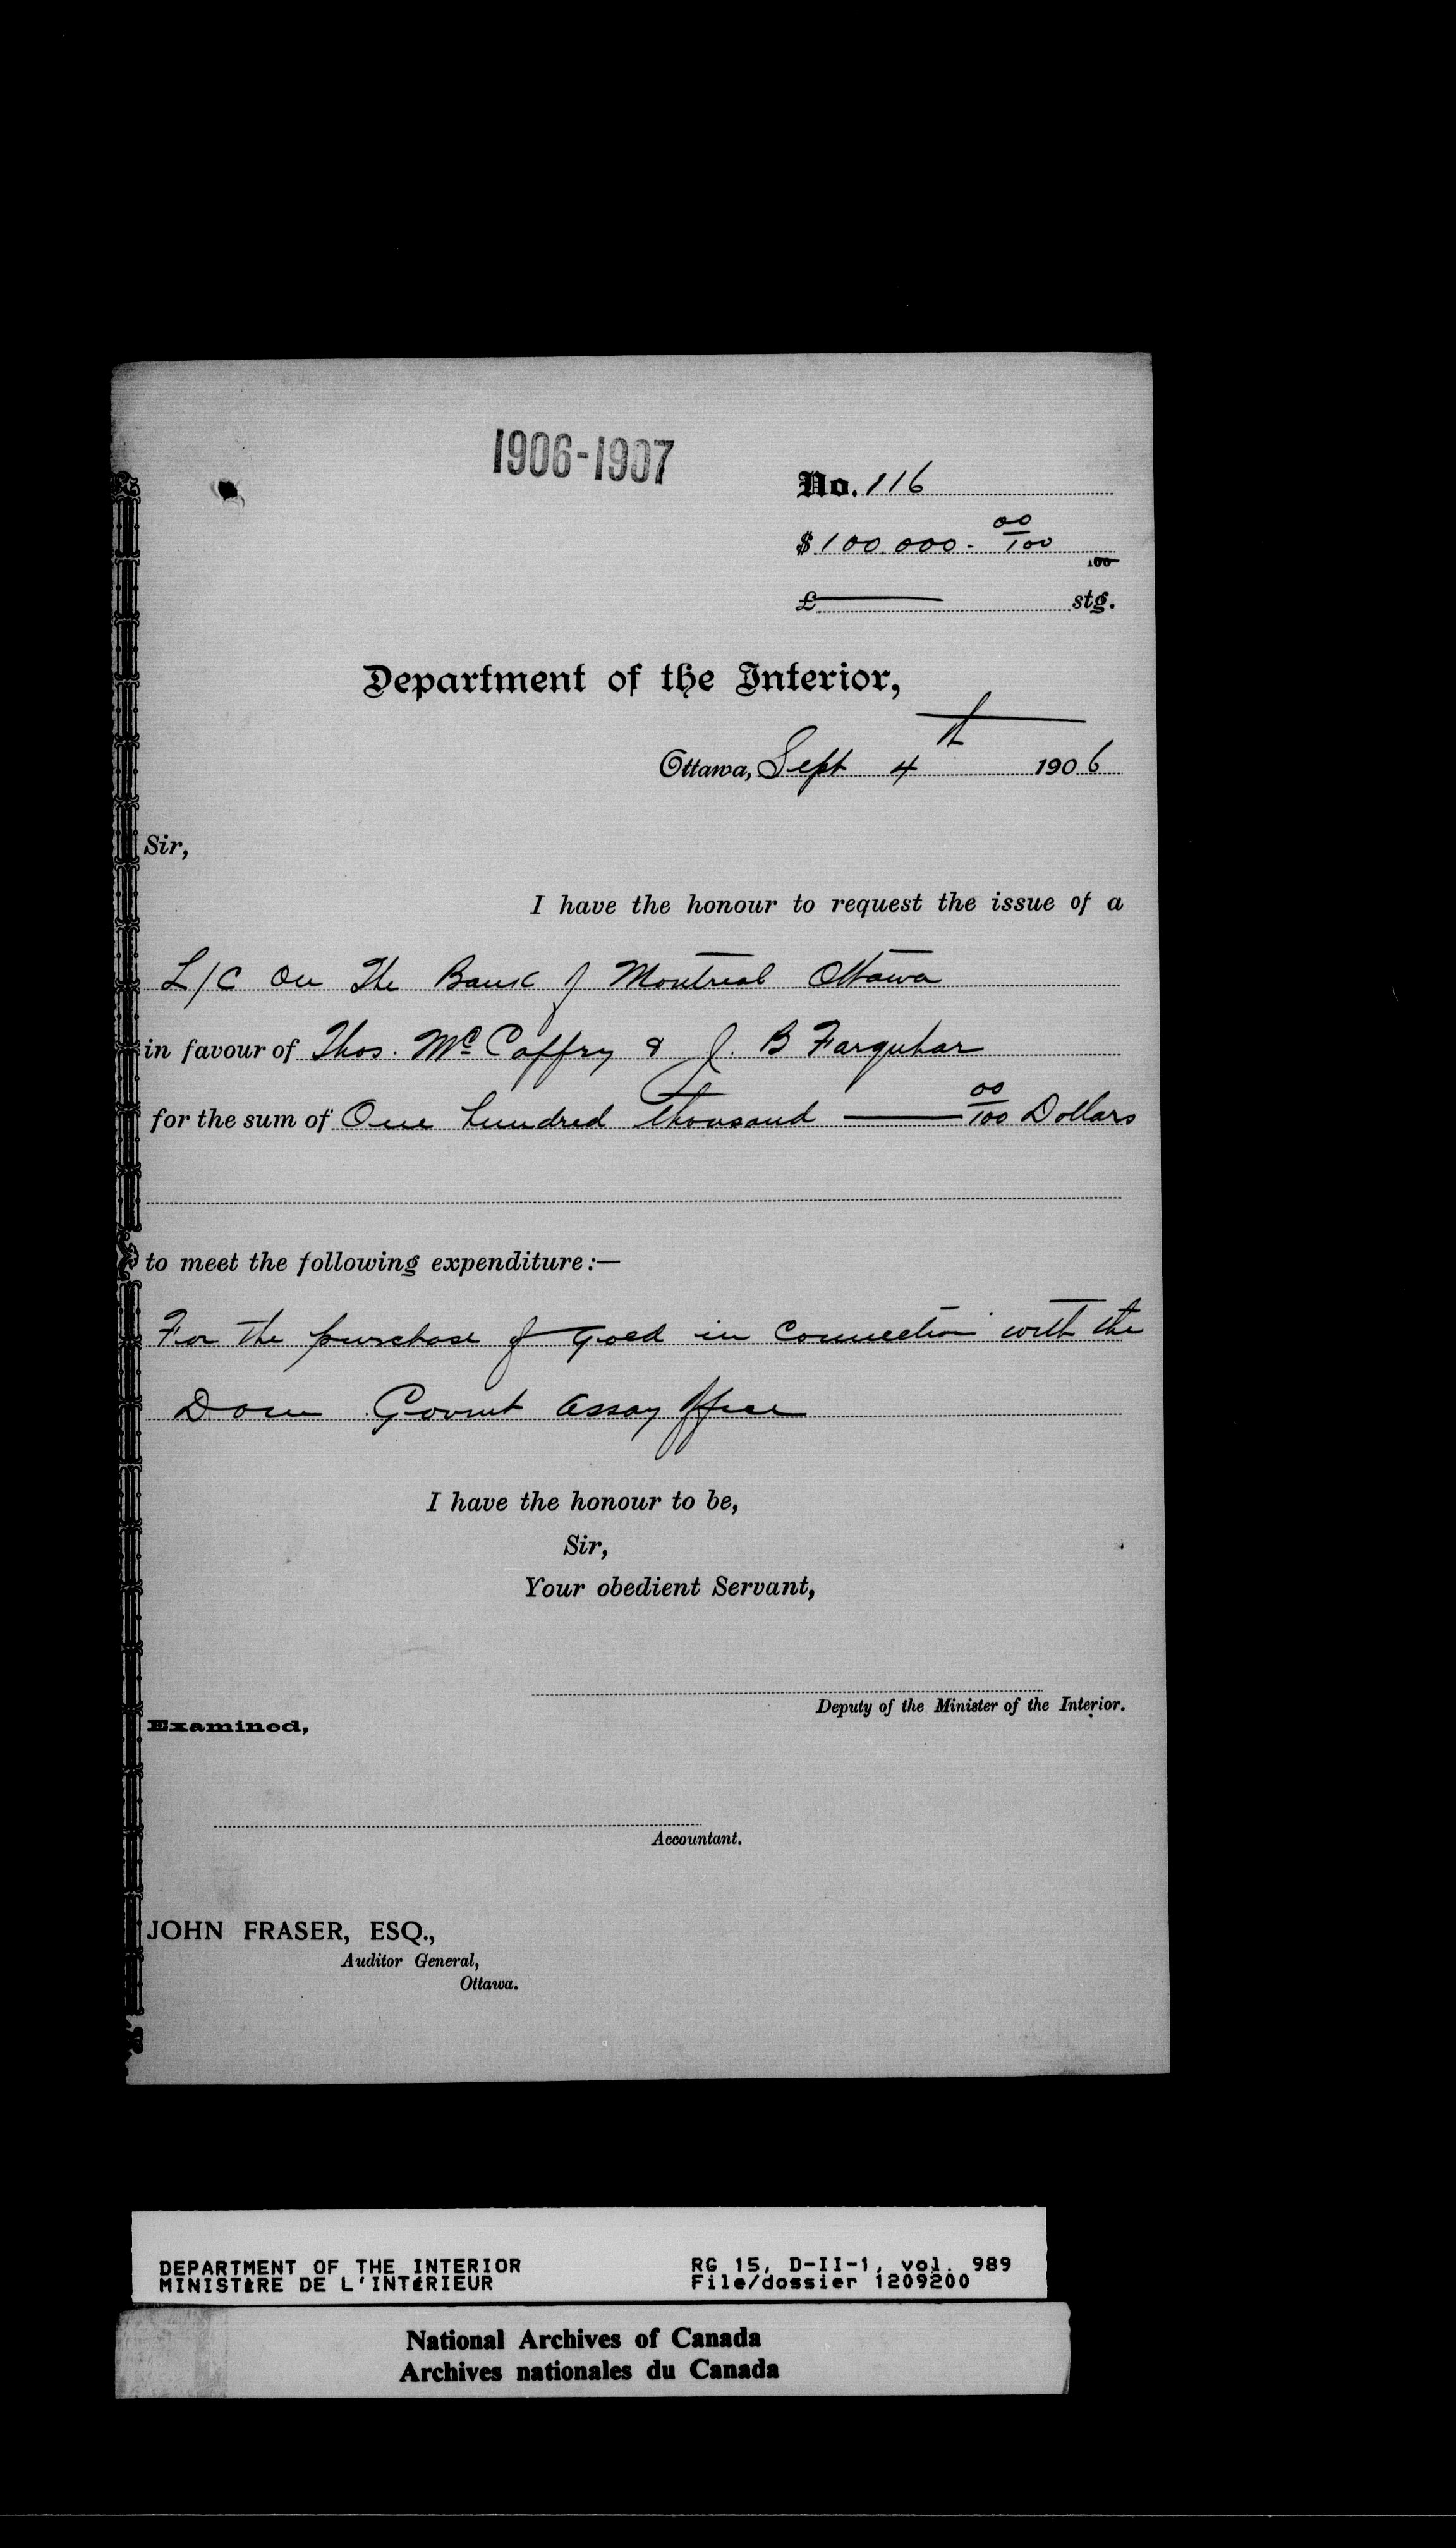 1906-1907
No. 116
$ 100.000 - 00/100
100
£ ——— stg.
Department of the Interior,
Ottawa, Sept 4th 1906
Sir,
I have the honour to request the issue of a
L/C on The Bank of Montreal Ottawa
in favour of Thos. McCaffry & J. B Farquhar
for the sum of One hundred thousand —— 00/100 Dollars
to meet the following expenditure:—
For the purchase of Gold in connection with the
Dom Govmt Assay Office
I have the honour to be,
Sir,
Your obedient Servant,
Deputy of the Minister of the Interior.
Examined,
Accountant.
JOHN FRASER, ESQ.,
Auditor General,
Ottawa.
DEPARTMENT OF THE INTERIOR RG 15, D-II-1, vol. 989
MINISTÈRE DE L'INTÉRIEUR File/dossier 1209200
National Archives of Canada
Archives nationales du Canada